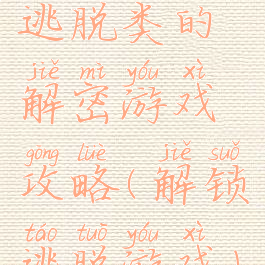 逃脱类的
jiě mì yóu xì
解密游戏
gōng lüè jiě suǒ
攻略(解锁
táo tuō yóu xì
逃脱游戏)